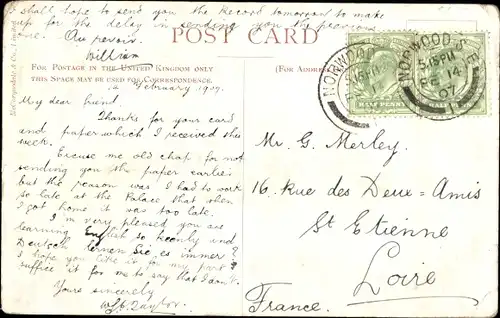 shall hope to send you the Record tomorrow to make
up for the delay in sending you the previous
one. Au revoir
William
POST CARD
FOR POSTAGE IN THE UNITED KINGDOM ONLY
THIS SPACE MAY BE USED FOR CORRESPONDENCE.
(FOR ADDRESS
14 February 1907.
My dear friend.
Thanks for your card
and paper which I received this
week.
Excuse me old chap for not
sending you the paper earlier
but the reason was I had to work
so late at the Palace that when
I got home it was too late.
I'm very pleased you are
learning English so keenly und
Deutsch lernen Sie es immer?
I hope you like it for my part
suffice it for me to say that I don't.
Yours sincerely
Taylor
NORWOOD S.E
5.15 PM
FE 14
07
NORWOOD
HALF PENNY
HALF PENNY
Mr. G. Merley.
16. Rue des Deux=Amis
St Etienne
Loire
France.